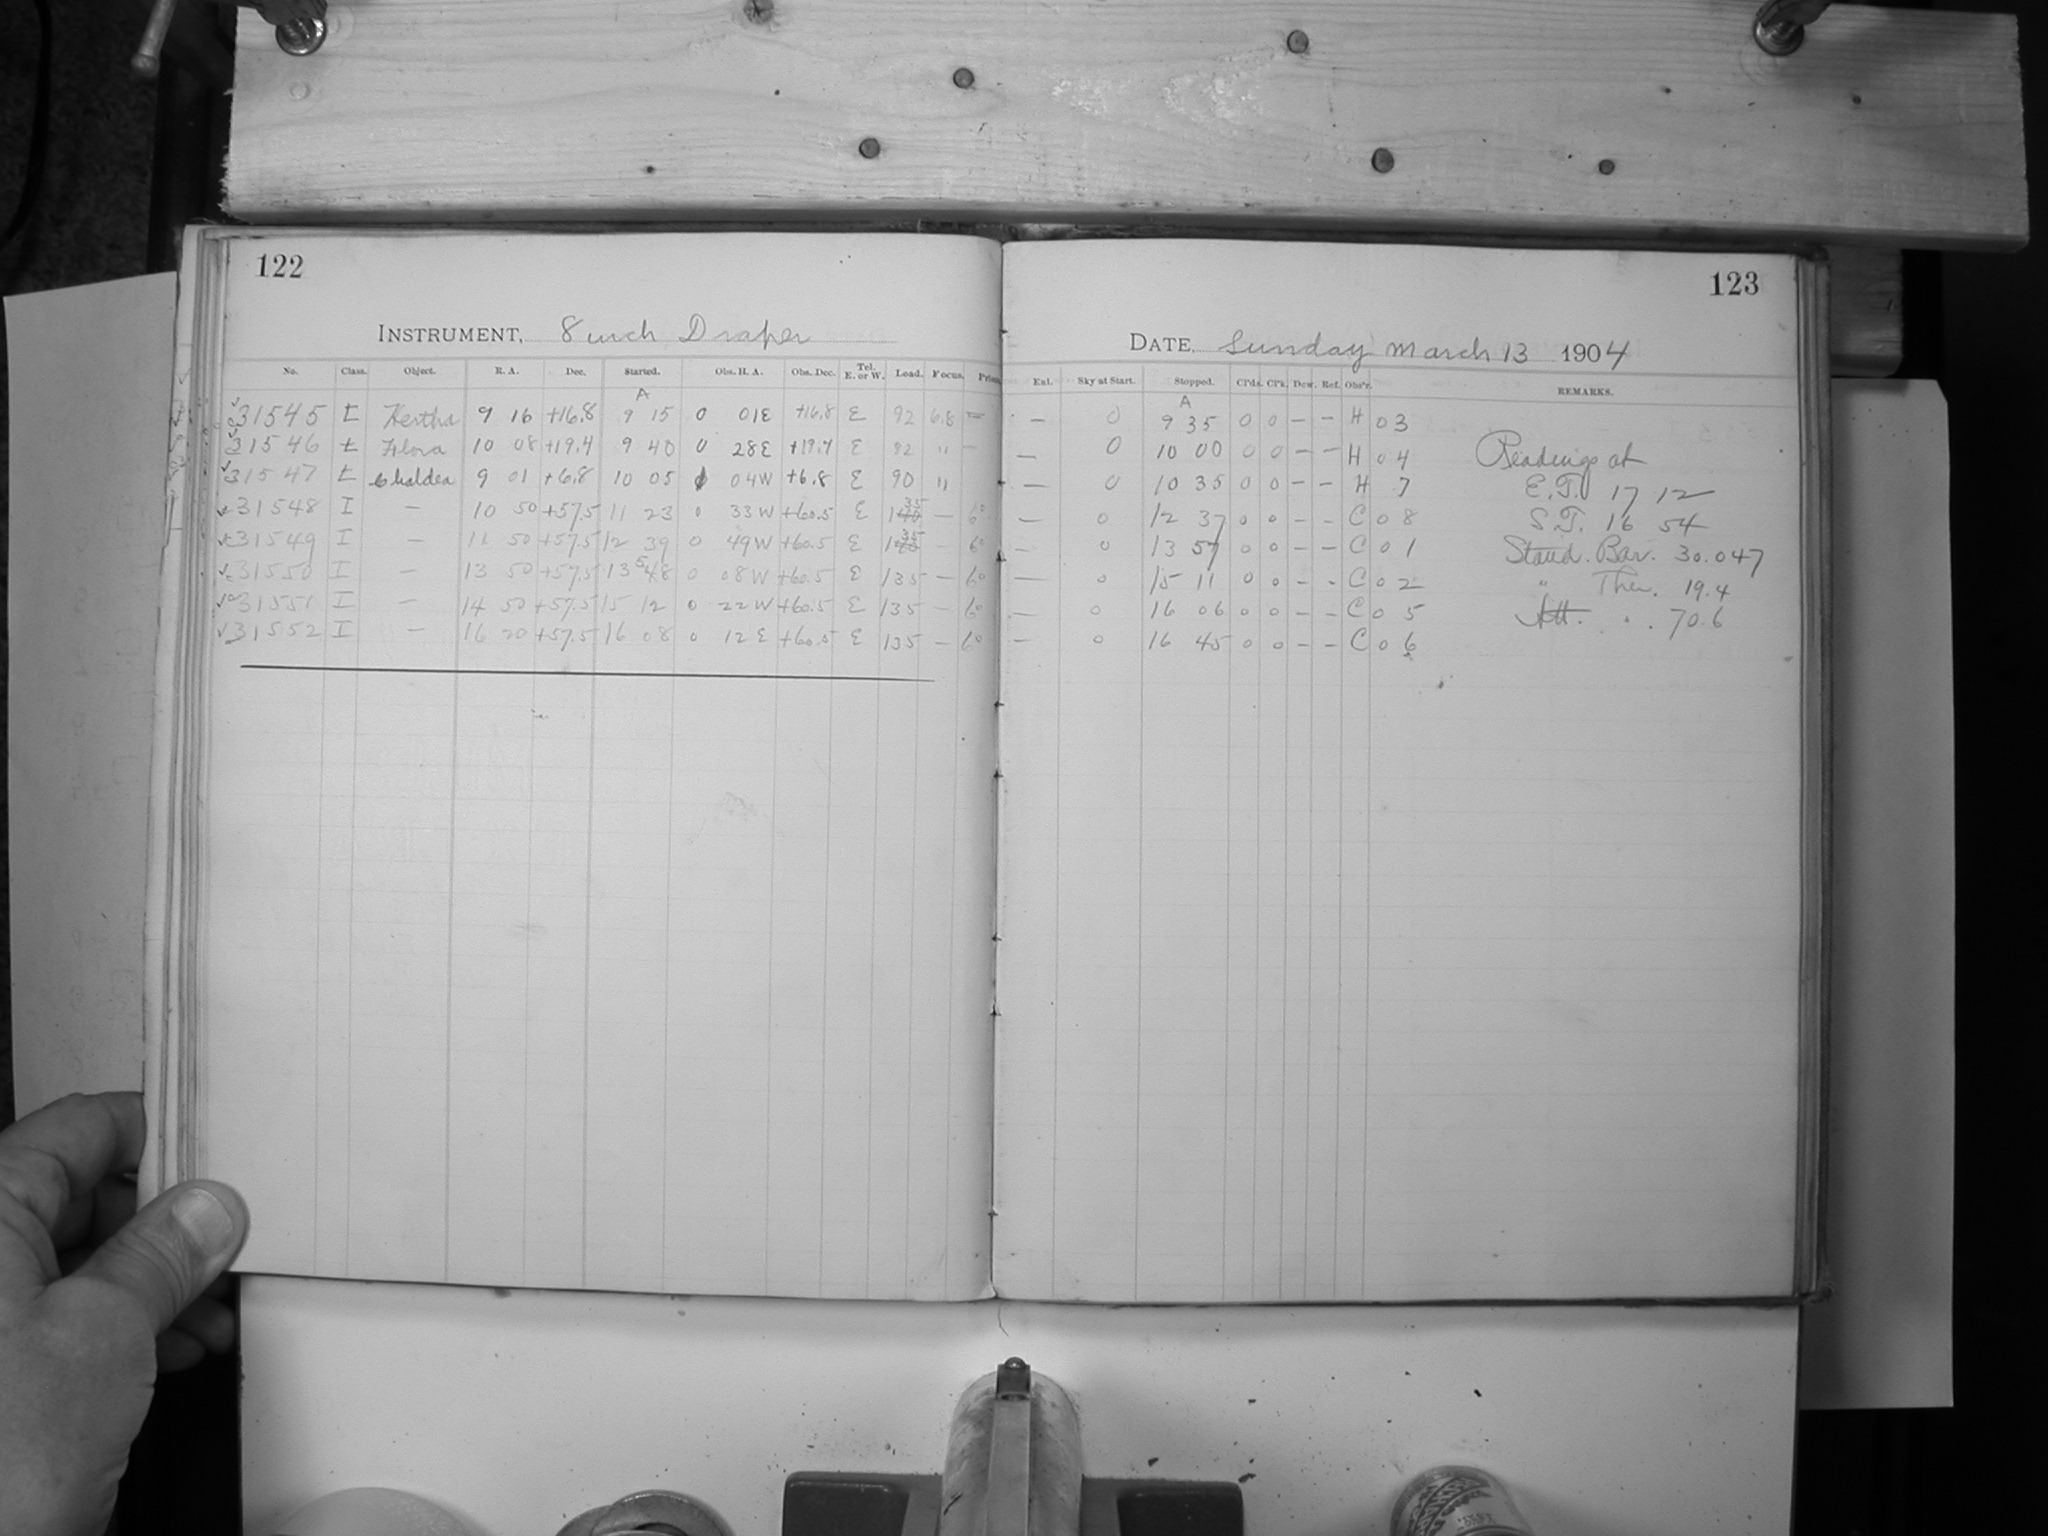 122
INSTRUMENT, 8 inch Draper
No. Class. Object. R. A. Dec. Started. Obs. H. A. Obs. Dec. Tel. E. or W. Load. Focus. Prism
A
31545 L Hertha 9 16 +16.8 9 15 0 01E +16.8 E 92 6.8 —
31546 L Flora 10 08 +19.4 9 40 0 28E +19.4 E 92 " —
31547 L Chaldea 9 01 +6.8 10 05 0 04W +6.8 E 90 "
31548 I — 10 50 +57.5 11 23 0 33W +60.5 E 135 — 6°
31549 I — 11 50 +57.5 12 39 0 49W +60.5 E 135 — 6°
31550 I — 13 50 +57.5 13 58 0 08W +60.5 E 135 — 6°
31551 I — 14 50 +57.5 15 12 0 22W +60.5 E 135 — 6°
31552 I — 16 20 +57.5 16 08 0 12E +60.5 E 135 — 6°
123
DATE, Sunday March 13 1904
Ent. Sky at Start. Stopped. Cl'ds. Cl'k. Dew. Ref. Obs'r. REMARKS.
A
— 0 9 35 0 0 — — H 03
— 0 10 00 0 0 — — H 04
— 0 10 35 0 0 — — H .7
— 0 12 37 0 0 — — C 08
— 0 13 57 0 0 — — C 01
— 0 15 11 0 0 — — C 02
— 0 16 06 0 0 — — C 05
— 0 16 45 0 0 — — C 06
Readings at
E.T. 17 12
S.T. 16 54
Stand. Bar. 30.047
" Ther. 19.4
Att. " 70.6